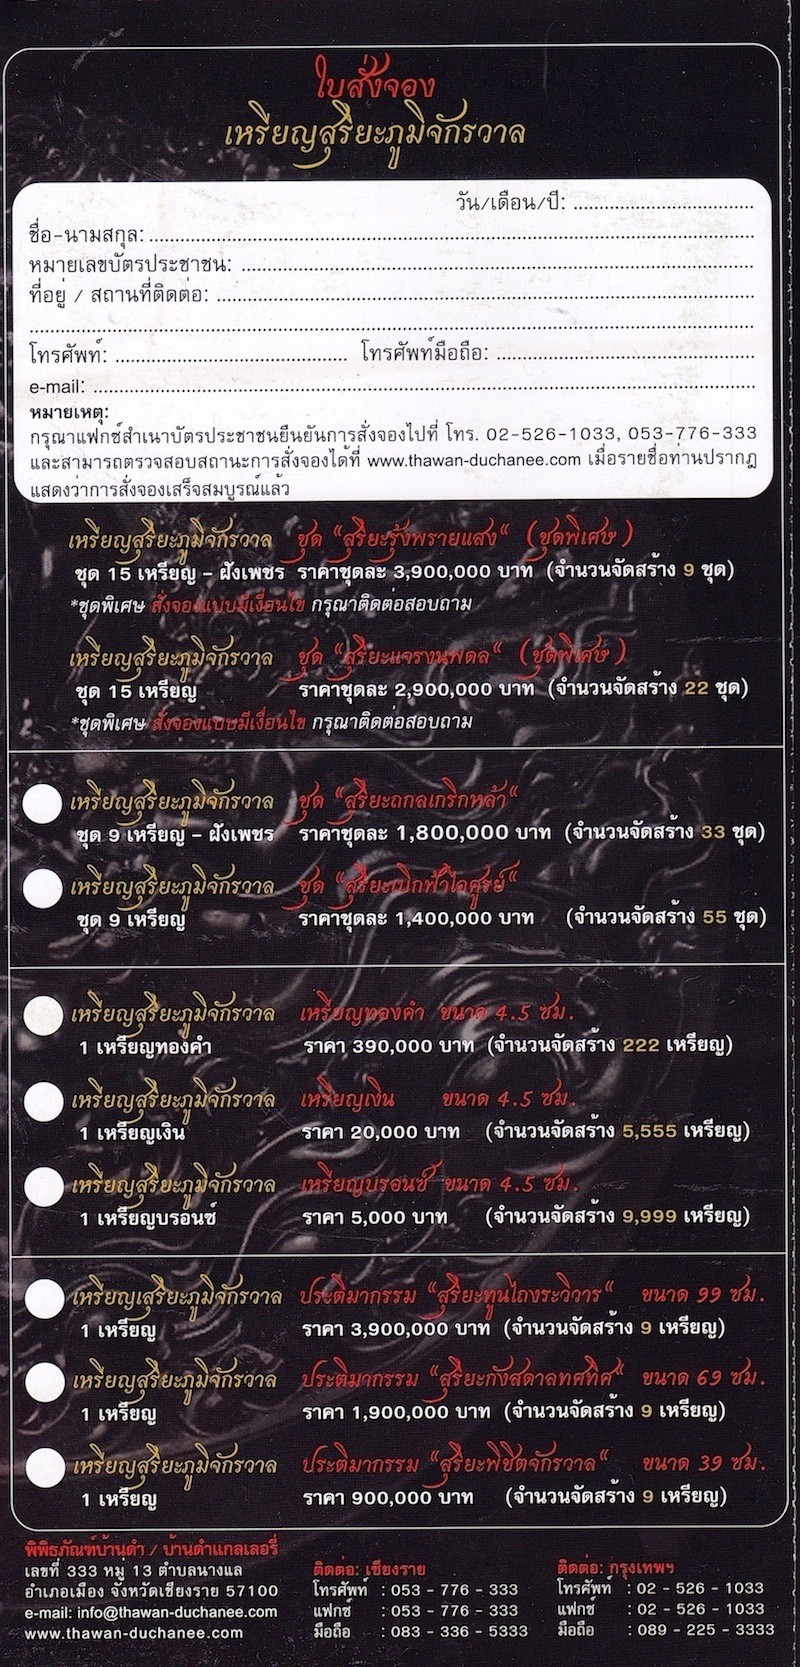 ใบสั่งจอง
เหรียญสุริยะภูมิจักรวาล
วัน/เดือน/ปี: ................................
ชื่อ-นามสกุล: ................................
หมายเลขบัตรประชาชน: ................................
ที่อยู่ / สถานที่ติดต่อ: ................................
................................
โทรศัพท์: ................................ โทรศัพท์มือถือ: ................................
e-mail: ................................
หมายเหตุ:
กรุณาแฟกซ์สำเนาบัตรประชาชนยืนยันการสั่งจองไปที่ โทร. 02-526-1033, 053-776-333
และสามารถตรวจสอบสถานะการสั่งจองได้ที่ www.thawan-duchanee.com เมื่อรายชื่อท่านปรากฎ
แสดงว่าการสั่งจองเสร็จสมบูรณ์แล้ว
เหรียญสุริยะภูมิจักรวาล ชุด "สุริยะรุ้งพรายแสง" (ชุดพิเศษ)
ชุด 15 เหรียญ - ฝังเพชร ราคาชุดละ 3,900,000 บาท (จำนวนจัดสร้าง 9 ชุด)
*ชุดพิเศษ สั่งจองแบบมีเงื่อนไข กรุณาติดต่อสอบถาม
เหรียญสุริยะภูมิจักรวาล ชุด "สุริยะแจรงนพดล" (ชุดพิเศษ)
ชุด 15 เหรียญ ราคาชุดละ 2,900,000 บาท (จำนวนจัดสร้าง 22 ชุด)
*ชุดพิเศษ สั่งจองแบบมีเงื่อนไข กรุณาติดต่อสอบถาม
เหรียญสุริยะภูมิจักรวาล ชุด "สุริยะถกลเกริกหล้า"
ชุด 9 เหรียญ - ฝังเพชร ราคาชุดละ 1,800,000 บาท (จำนวนจัดสร้าง 33 ชุด)
เหรียญสุริยะภูมิจักรวาล ชุด "สุริยะเบิกฟ้าไอศูรย์"
ชุด 9 เหรียญ ราคาชุดละ 1,400,000 บาท (จำนวนจัดสร้าง 55 ชุด)
เหรียญสุริยะภูมิจักรวาล เหรียญทองคำ ขนาด 4.5 ซม.
1 เหรียญทองคำ ราคา 390,000 บาท (จำนวนจัดสร้าง 222 เหรียญ)
เหรียญสุริยะภูมิจักรวาล เหรียญเงิน ขนาด 4.5 ซม.
1 เหรียญเงิน ราคา 20,000 บาท (จำนวนจัดสร้าง 5,555 เหรียญ)
เหรียญสุริยะภูมิจักรวาล เหรียญบรอนซ์ ขนาด 4.5 ซม.
1 เหรียญบรอนซ์ ราคา 5,000 บาท (จำนวนจัดสร้าง 9,999 เหรียญ)
เหรียญเสุริยะภูมิจักรวาล ประติมากรรม "สุริยะทูนไถงระวิวาร" ขนาด 99 ซม.
1 เหรียญ ราคา 3,900,000 บาท (จำนวนจัดสร้าง 9 เหรียญ)
เหรียญสุริยะภูมิจักรวาล ประติมากรรม "สุริยะกังสดาลทศทิศ" ขนาด 69 ซม.
1 เหรียญ ราคา 1,900,000 บาท (จำนวนจัดสร้าง 9 เหรียญ)
เหรียญสุริยะภูมิจักรวาล ประติมากรรม "สุริยะพิชิตจักรวาล" ขนาด 39 ซม.
1 เหรียญ ราคา 900,000 บาท (จำนวนจัดสร้าง 9 เหรียญ)
พิพิธภัณฑ์บ้านดำ / บ้านดำแกลเลอรี่
เลขที่ 333 หมู่ 13 ตำบลนางแล
อำเภอเมือง จังหวัดเชียงราย 57100
e-mail: info@thawan-duchanee.com
www.thawan-duchanee.com
ติดต่อ: เชียงราย
โทรศัพท์ : 053 - 776 - 333
แฟกซ์ : 053 - 776 - 333
มือถือ : 083 - 336 - 5333
ติดต่อ: กรุงเทพฯ
โทรศัพท์ : 02 - 526 - 1033
แฟกซ์ : 02 - 526 - 1033
มือถือ : 089 - 225 - 3333